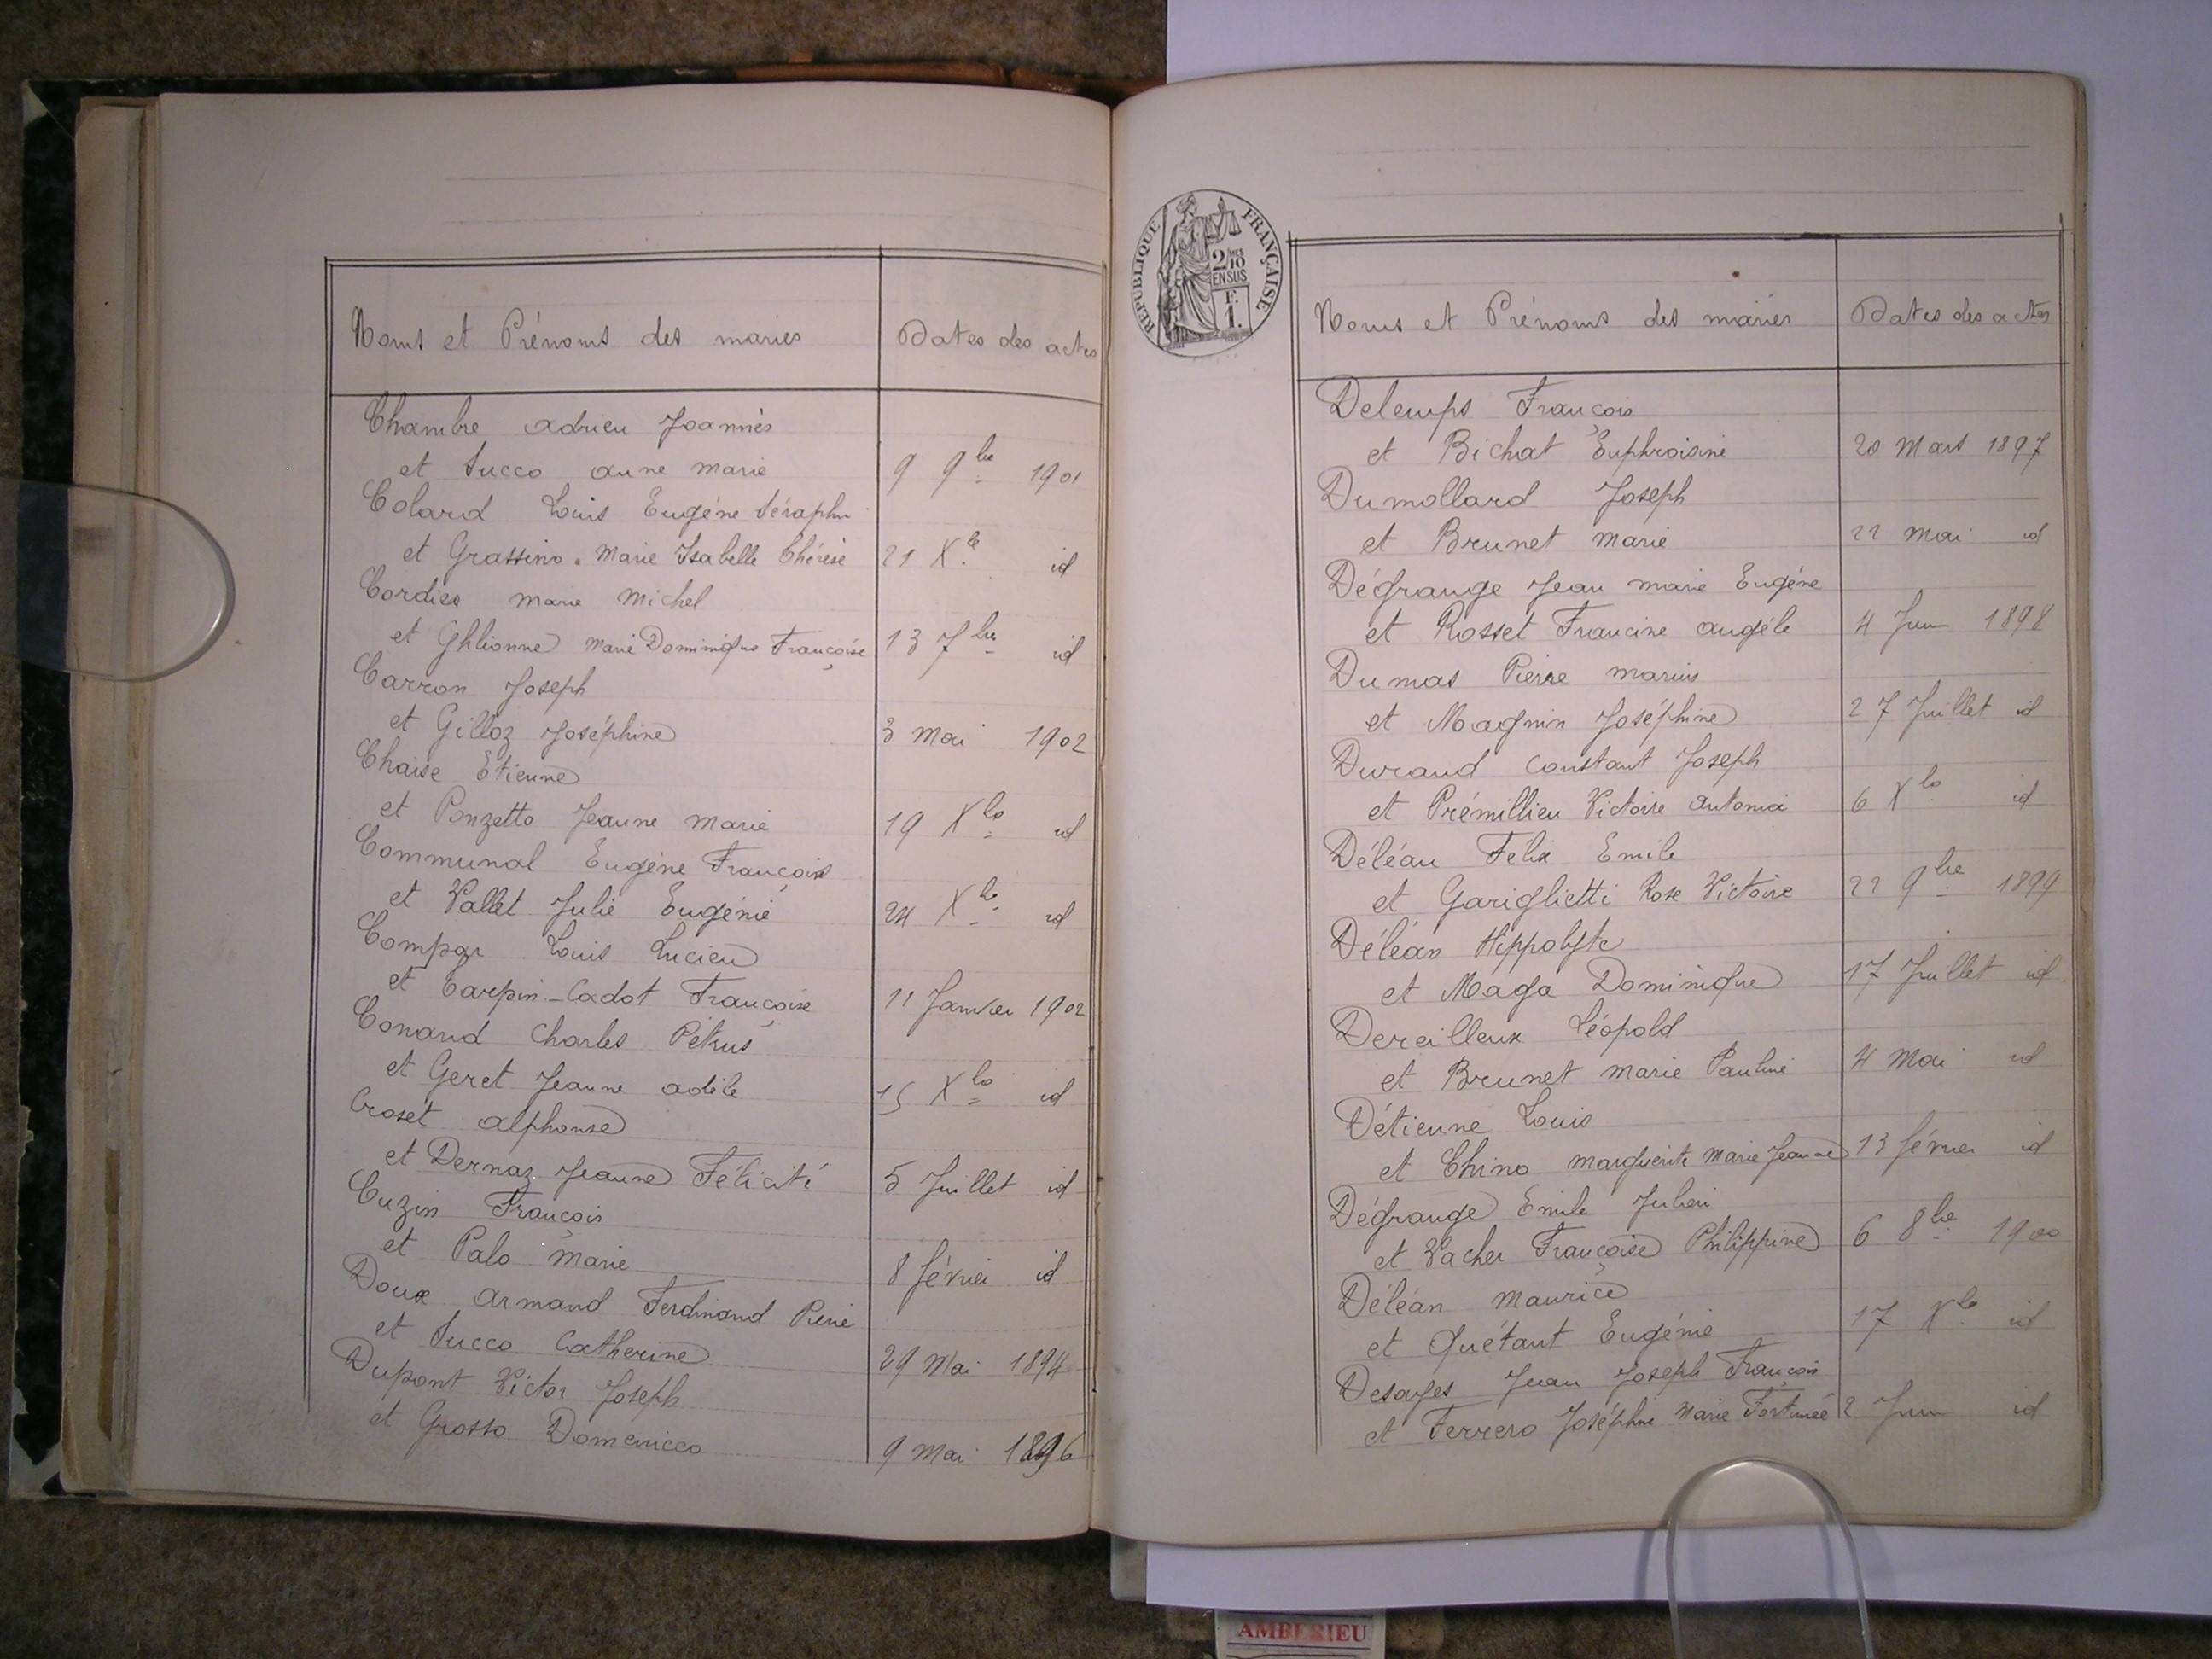 Noms et Prénoms des mariés
Dates des actes
Chambre adrien Joannès
et Succo anne marie 9 9bre 1901
Colard Louis Eugène Séraphin
et Grassino. Marie Isabelle Thérèse 21 Xbre id
Cordier marie Michel
et Ghlionne Marie Dominique Françoise 13 7bre id
Carron Joseph
et Gilloz Joséphine 3 mai 1902
Chaise Etienne
et Ponzetto Jeanne marie 19 Xbre id
Communal Eugène François
et Vallet Julie Eugénie 24 Xbre id
Louis Lucien
et Carpin-Cadot Françoise 11 Janvier 1902
Conand Charles Pétrus
et Geret Jeanne adèle 15 Xbre id
Croset alphonse
et Dernaz Jeanne Félicité 5 Juillet id
Cuzin François
et Palo marie 8 février id
Doux armand Ferdinand Pierre
et Succo Catherine 29 Mai 1894
Dupont Victor Joseph
et Grosso Domenicca 9 Mai 1896
REPUBLIQUE FRANÇAISE
2/10 MES
EN SUS
F.
1.
Noms et Prénoms des mariés
Dates des actes
Delemps François
et Bichat Euphroisine 20 Mars 1897
Dumollard Joseph
et Brunet marie 22 mai id
Dégrange Jean marie Eugène
et Rosset Francine angèle 4 Juin 1898
Dumas Pierre marius
et Magnin Joséphine 27 Juillet id
Durand constant Joseph
et Prémillieu Victoire antonia 6 Xbre id
Déléan Félix Emile
et Gariglietti Rose Victoire 22 9bre 1899
Déléan Hippolyte
et Maga Dominique 17 Juillet id
Dereilleux Léopold
et Brunet marie Pauline 4 Mai id
Détienne Louis
et Chino marguerite Marie Jeanne 13 février id
Dégrange Emile Julien
et Vacher Françoise Philippine 6 8bre 1900
Déléan maurice
et Quétant Eugénie 17 Xbre id
Desayes Jean Joseph François
et Ferrero Joséphine Marie Fortunée 2 Juin id
AMBERIEU